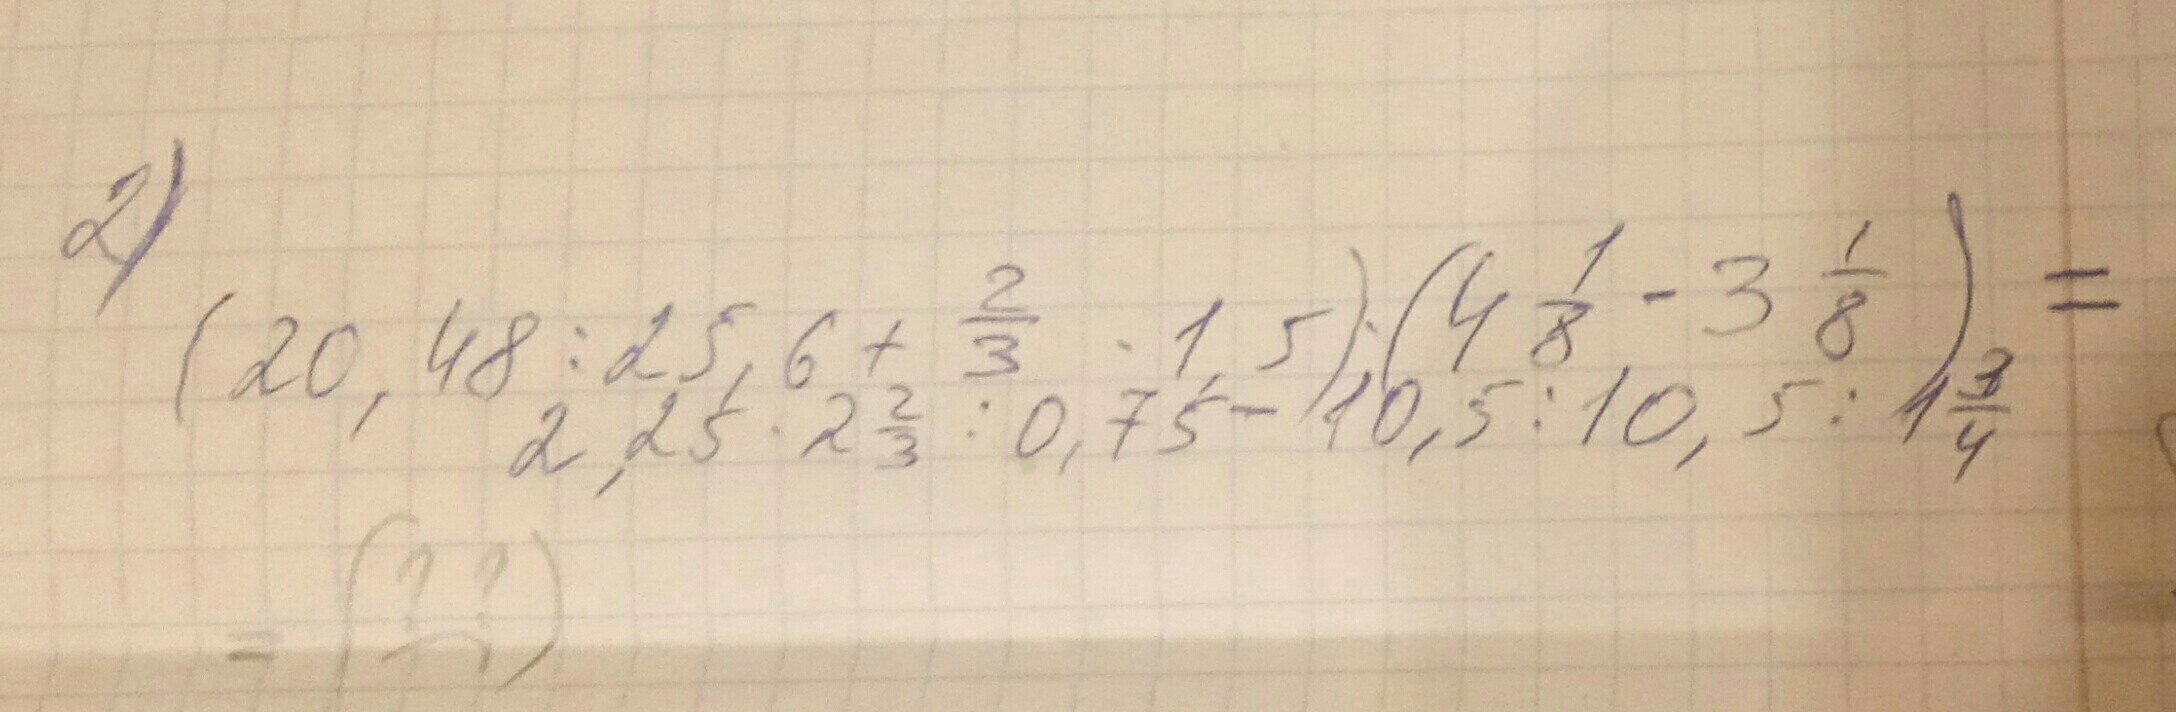 2)
(20,48:25,6+2/3·1,5):(4 1/8-3 1/8)=
2,25·2 2/3:0,75-10,5:10,5:1 3/4
=(??)